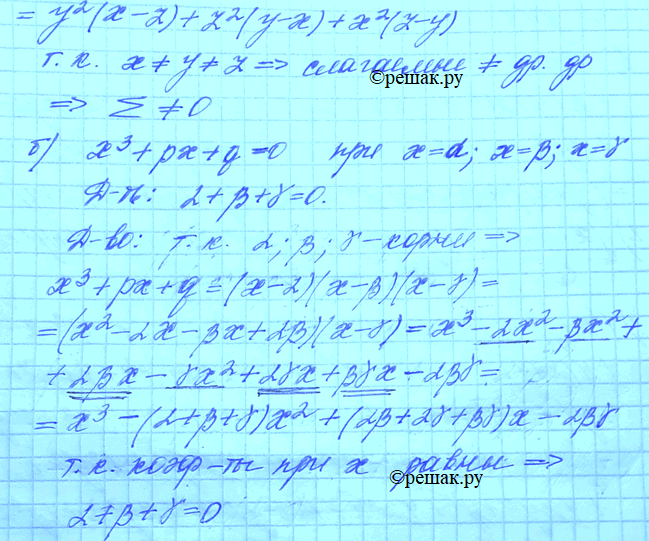 = y²(x-z)+z²(y-x)+x²(z-y)
т.к. x≠y≠z => слагаемые ≠ др. др
©решак.ру
=> Σ ≠ 0
б) x³+px+q=0 при x=α; x=β; x=γ
Д-ть: α+β+γ=0.
Д-во: т.к. α; β; γ - корни =>
x³+px+q=(x-α)(x-β)(x-γ)=
=(x²-αx-βx+αβ)(x-γ)=x³-αx²-βx²+
+αβx-γx²+αγx+βγx-αβγ=
=x³-(α+β+γ)x²+(αβ+αγ+βγ)x-αβγ
т.к. коэф-ты при x равны =>
©решак.ру
α+β+γ=0